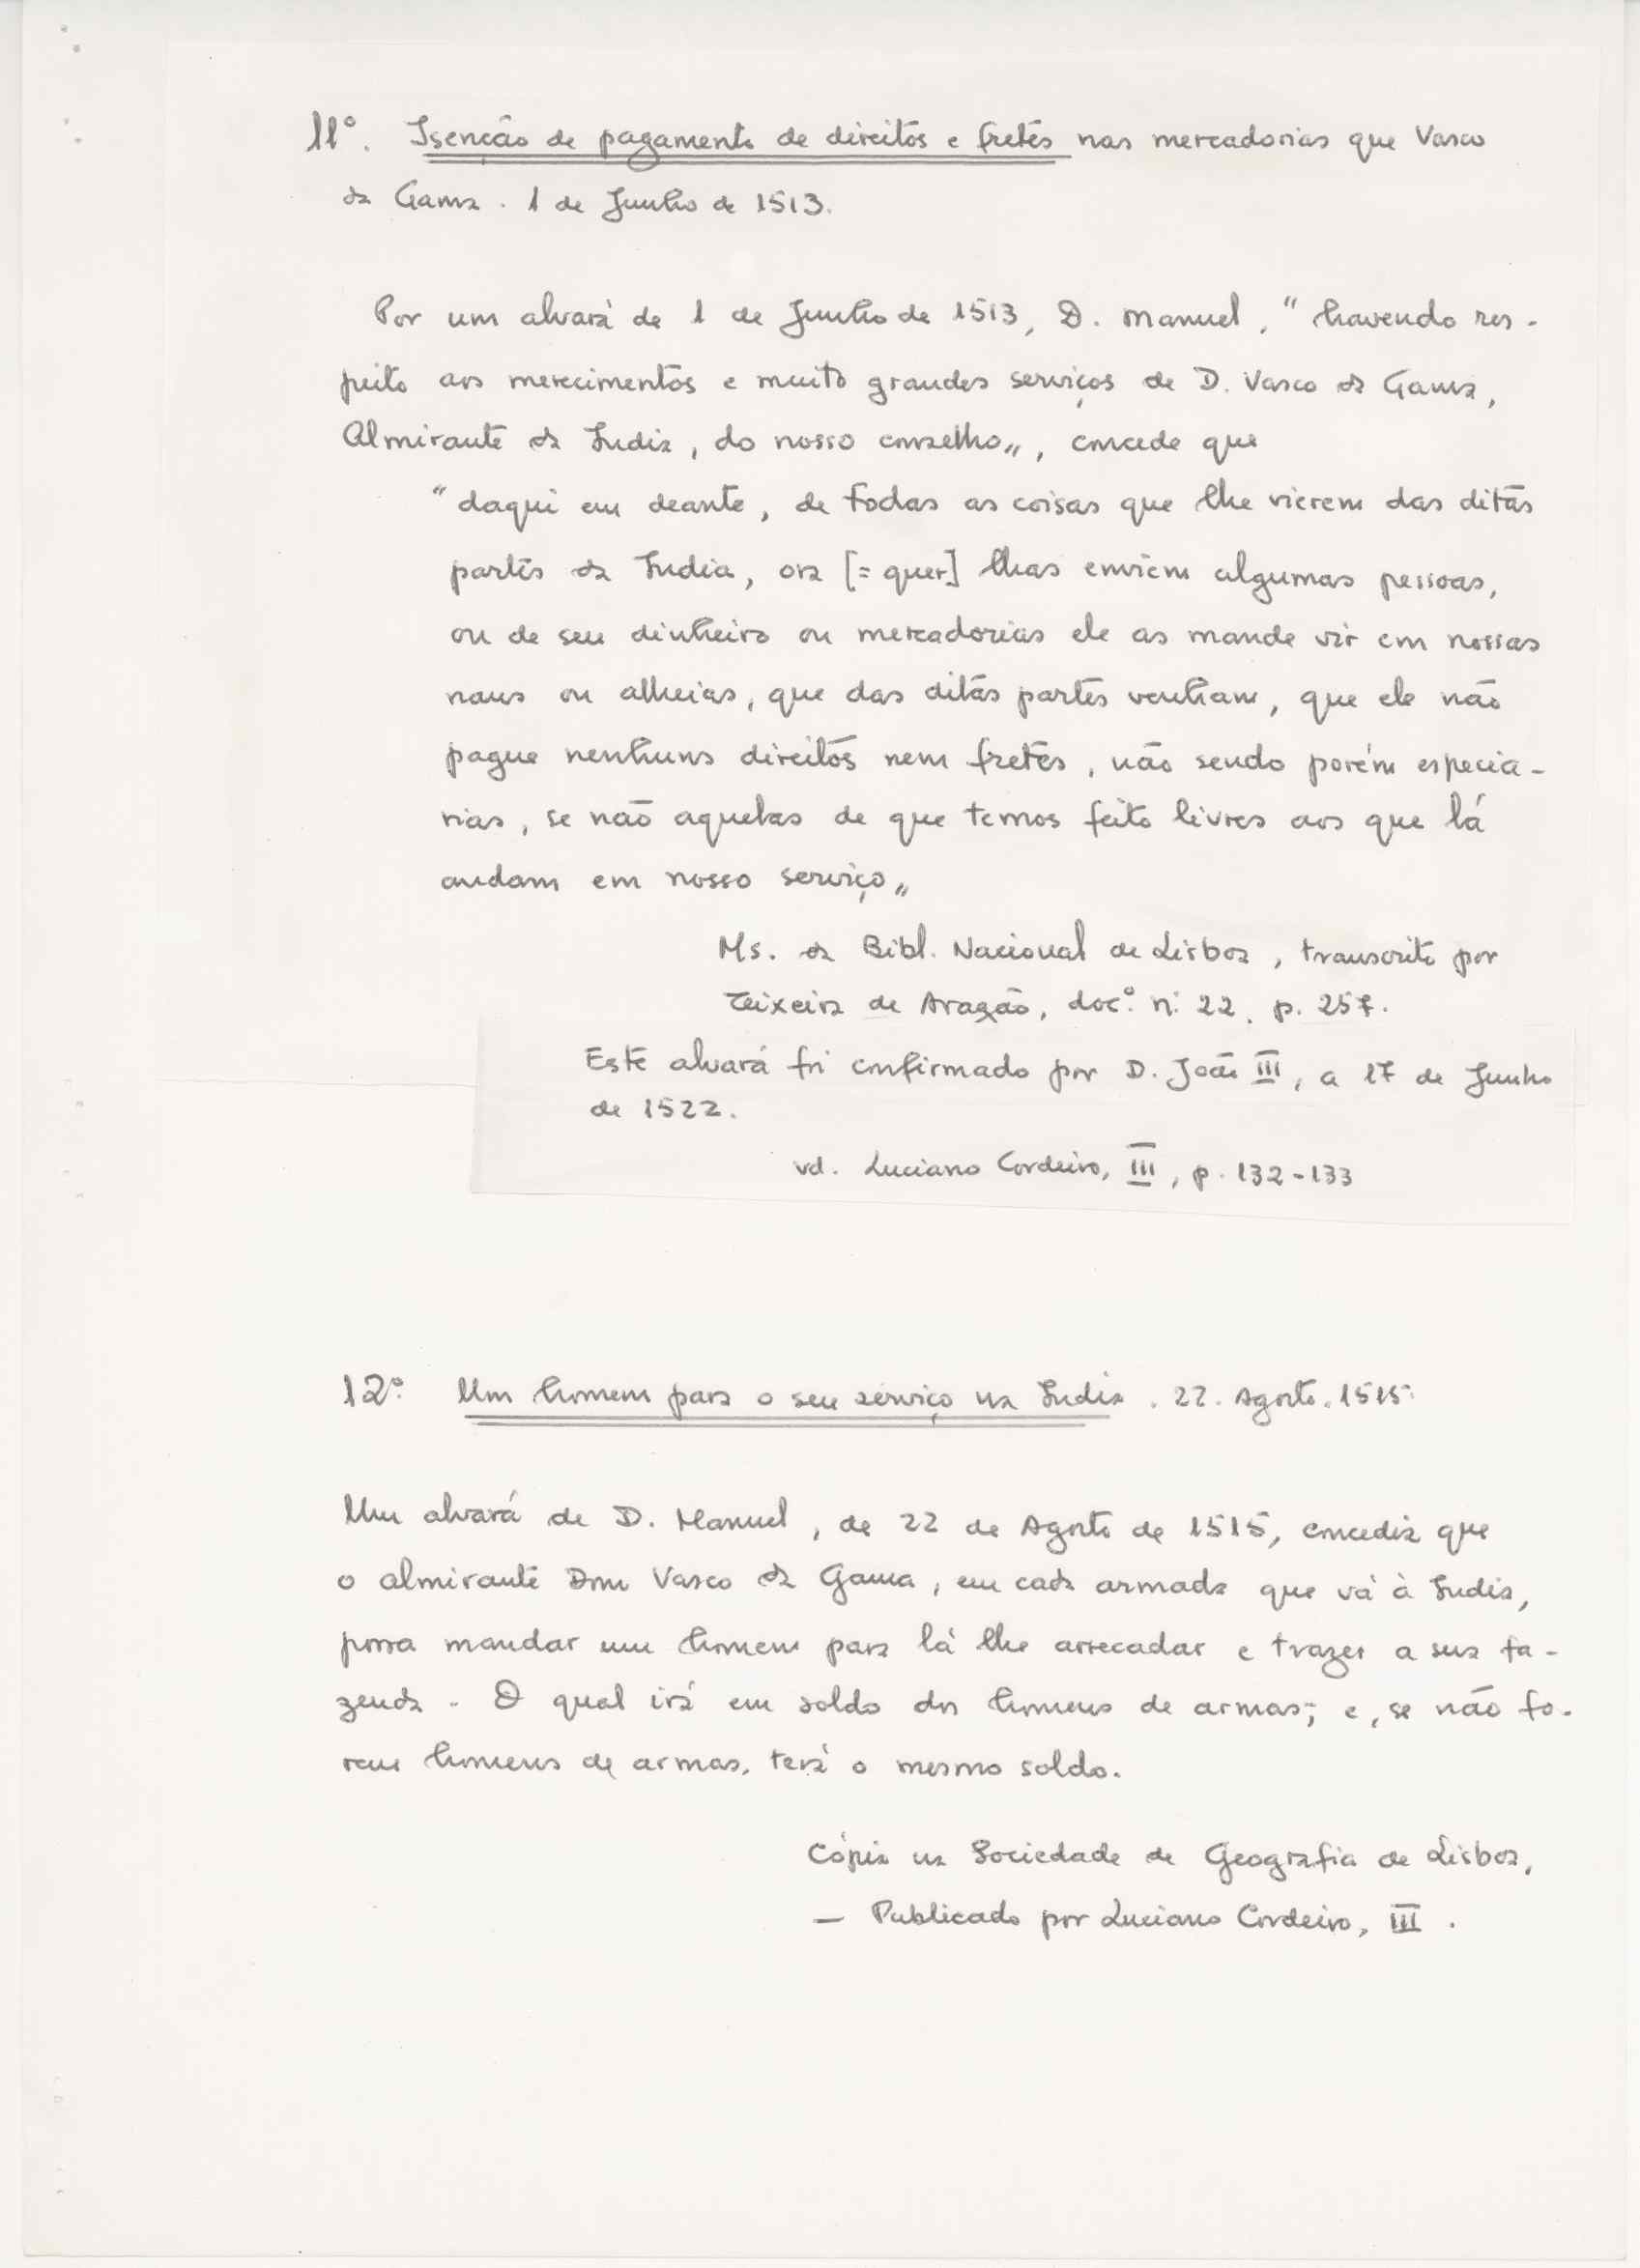 11º. Isenção de pagamento de direitos e fretes nas mercadorias que Vasco
da Gama. 1 de Junho de 1513.
Por um alvará de 1 de Junho de 1513, D. Manuel, "havendo res-
peito aos merecimentos e muito grandes serviços de D. Vasco da Gama,
Almirante da India, do nosso conselho", concede que
"daqui em deante, de todas as coisas que lhe vierem das ditas
partes da India, ora [= quer] lhas enviem algumas pessoas,
ou de seu dinheiro ou mercadorias ele as mande vir em nossas
naus ou alheias, que das ditas partes venham, que ele não
pague nenhuns direitos nem fretes, não sendo porém especia-
rias, se não aquelas de que temos feito livres aos que lá
andam em nosso serviço"
Ms. da Bibl. Nacional de Lisboa, transcrito por
Teixeira de Aragão, docº. n: 22. p. 257.
Este alvará foi confirmado por D. João III, a 17 de Junho
de 1522.
vd. Luciano Cordeiro, III, p. 132-133
12º. Um homem para o seu serviço na India. 22. Agosto. 1515.
Um alvará de D. Manuel, de 22 de Agosto de 1515, concedia que
o almirante Dom Vasco da Gama, em cada armada que vá à India,
possa mandar um homem para lá lhe arrecadar e trazer a sua fa-
zenda. O qual irá em soldo dos homens de armas; e, se não fo-
rem homens de armas, terá o mesmo soldo.
Cópia na Sociedade de Geografia de Lisboa,
— Publicado por Luciano Cordeiro, III.